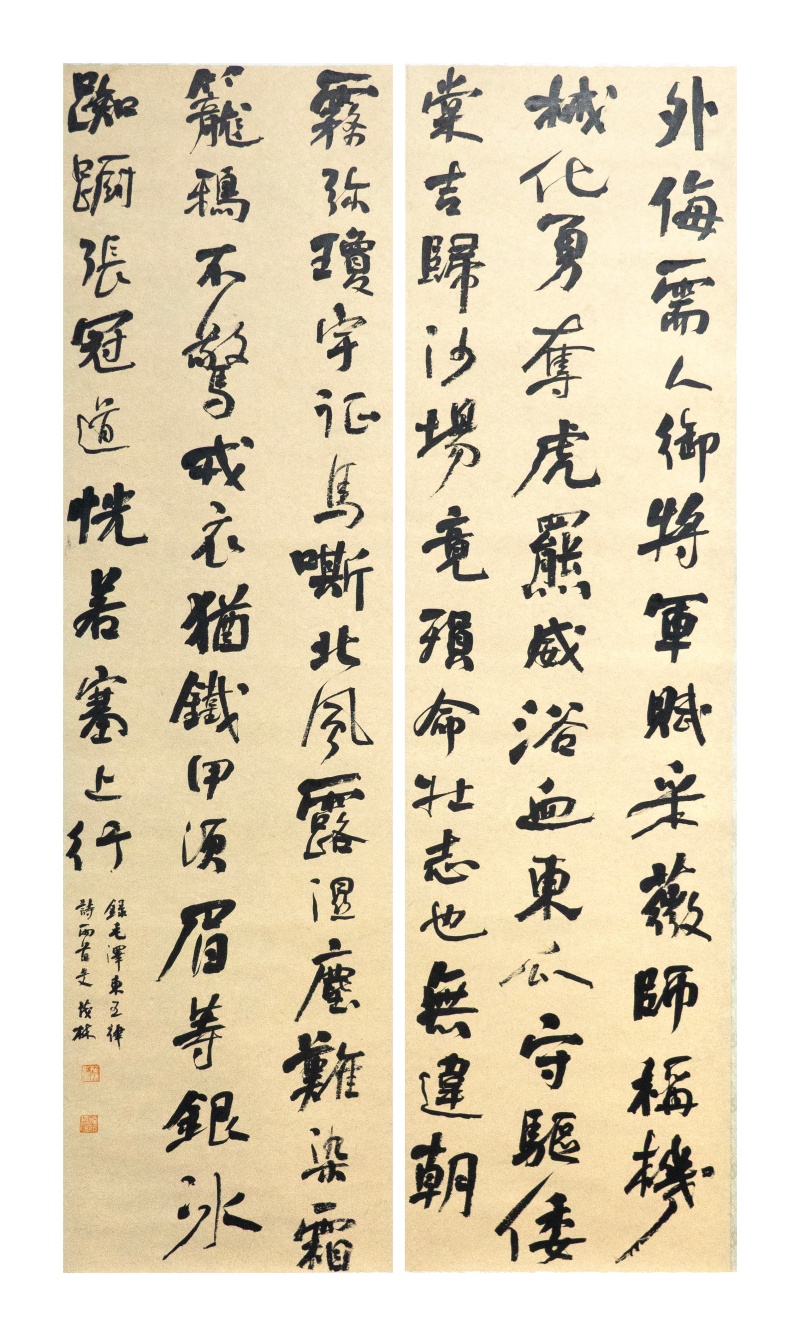 外侮需人御將軍賦采薇師稱機
械化勇奪虎羆威浴血東瓜守驅倭
棠吉歸沙場竟殞命壯志也無違朝
霧弥瓊宇征馬嘶北風露濕塵難染霜
籠鴉不驚戎衣猶鐵甲須眉等銀冰
踟躕張冠道恍若塞上行
錄毛澤東五律
詩兩首 茂林